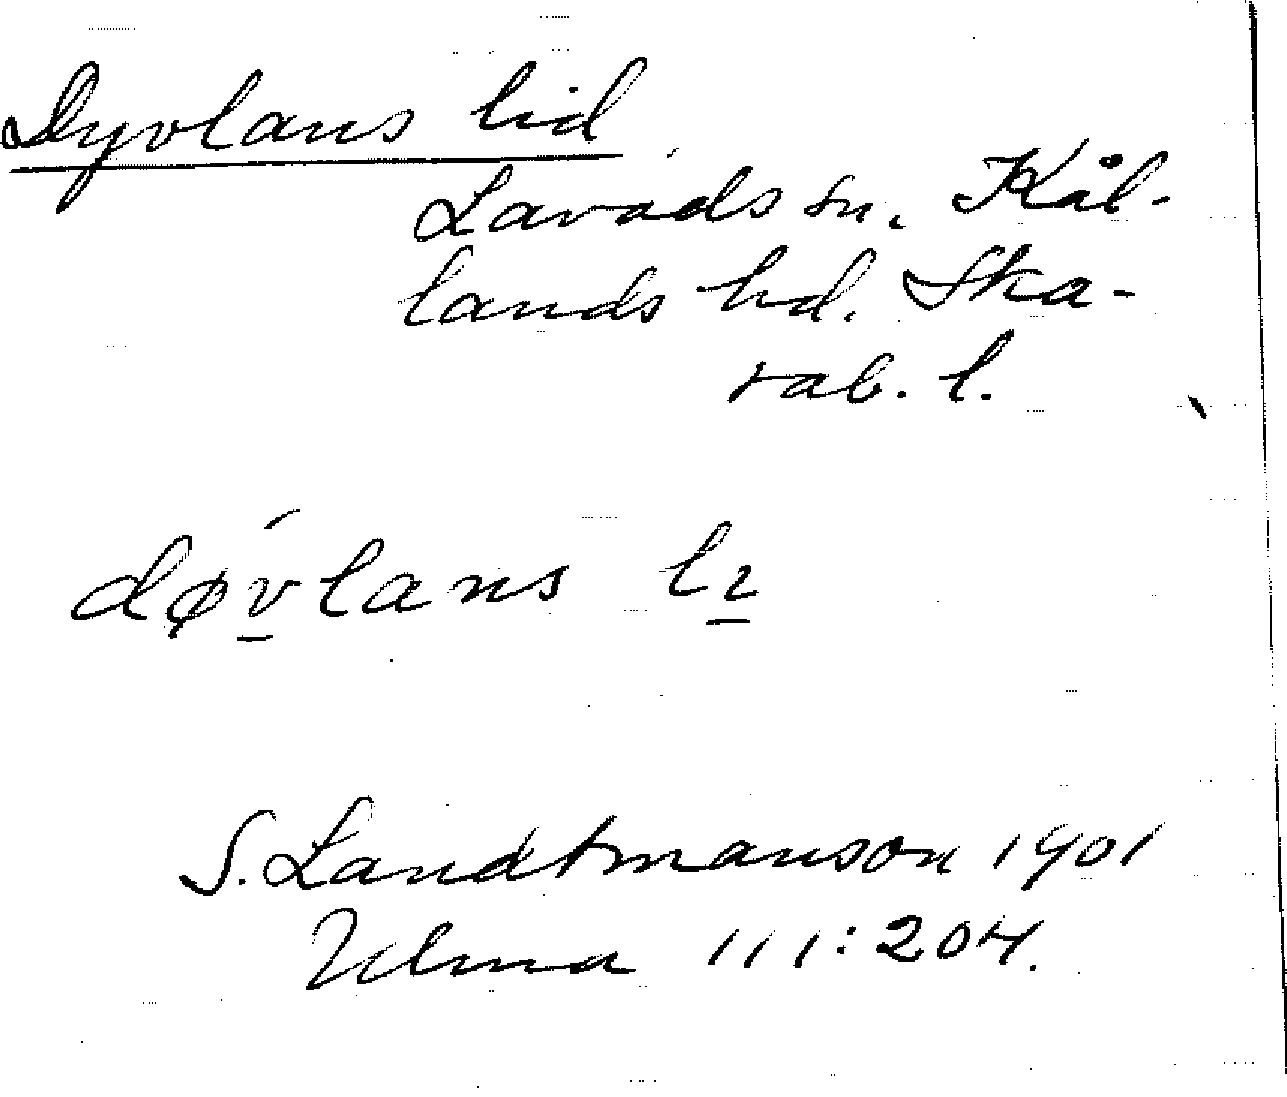 Dyvlans lid
Lavads sn. Kål-
lands hd. Ska-
rab. l.
døv́lans lɩ
S. Landtmanson 1901
Ulma 111:204.